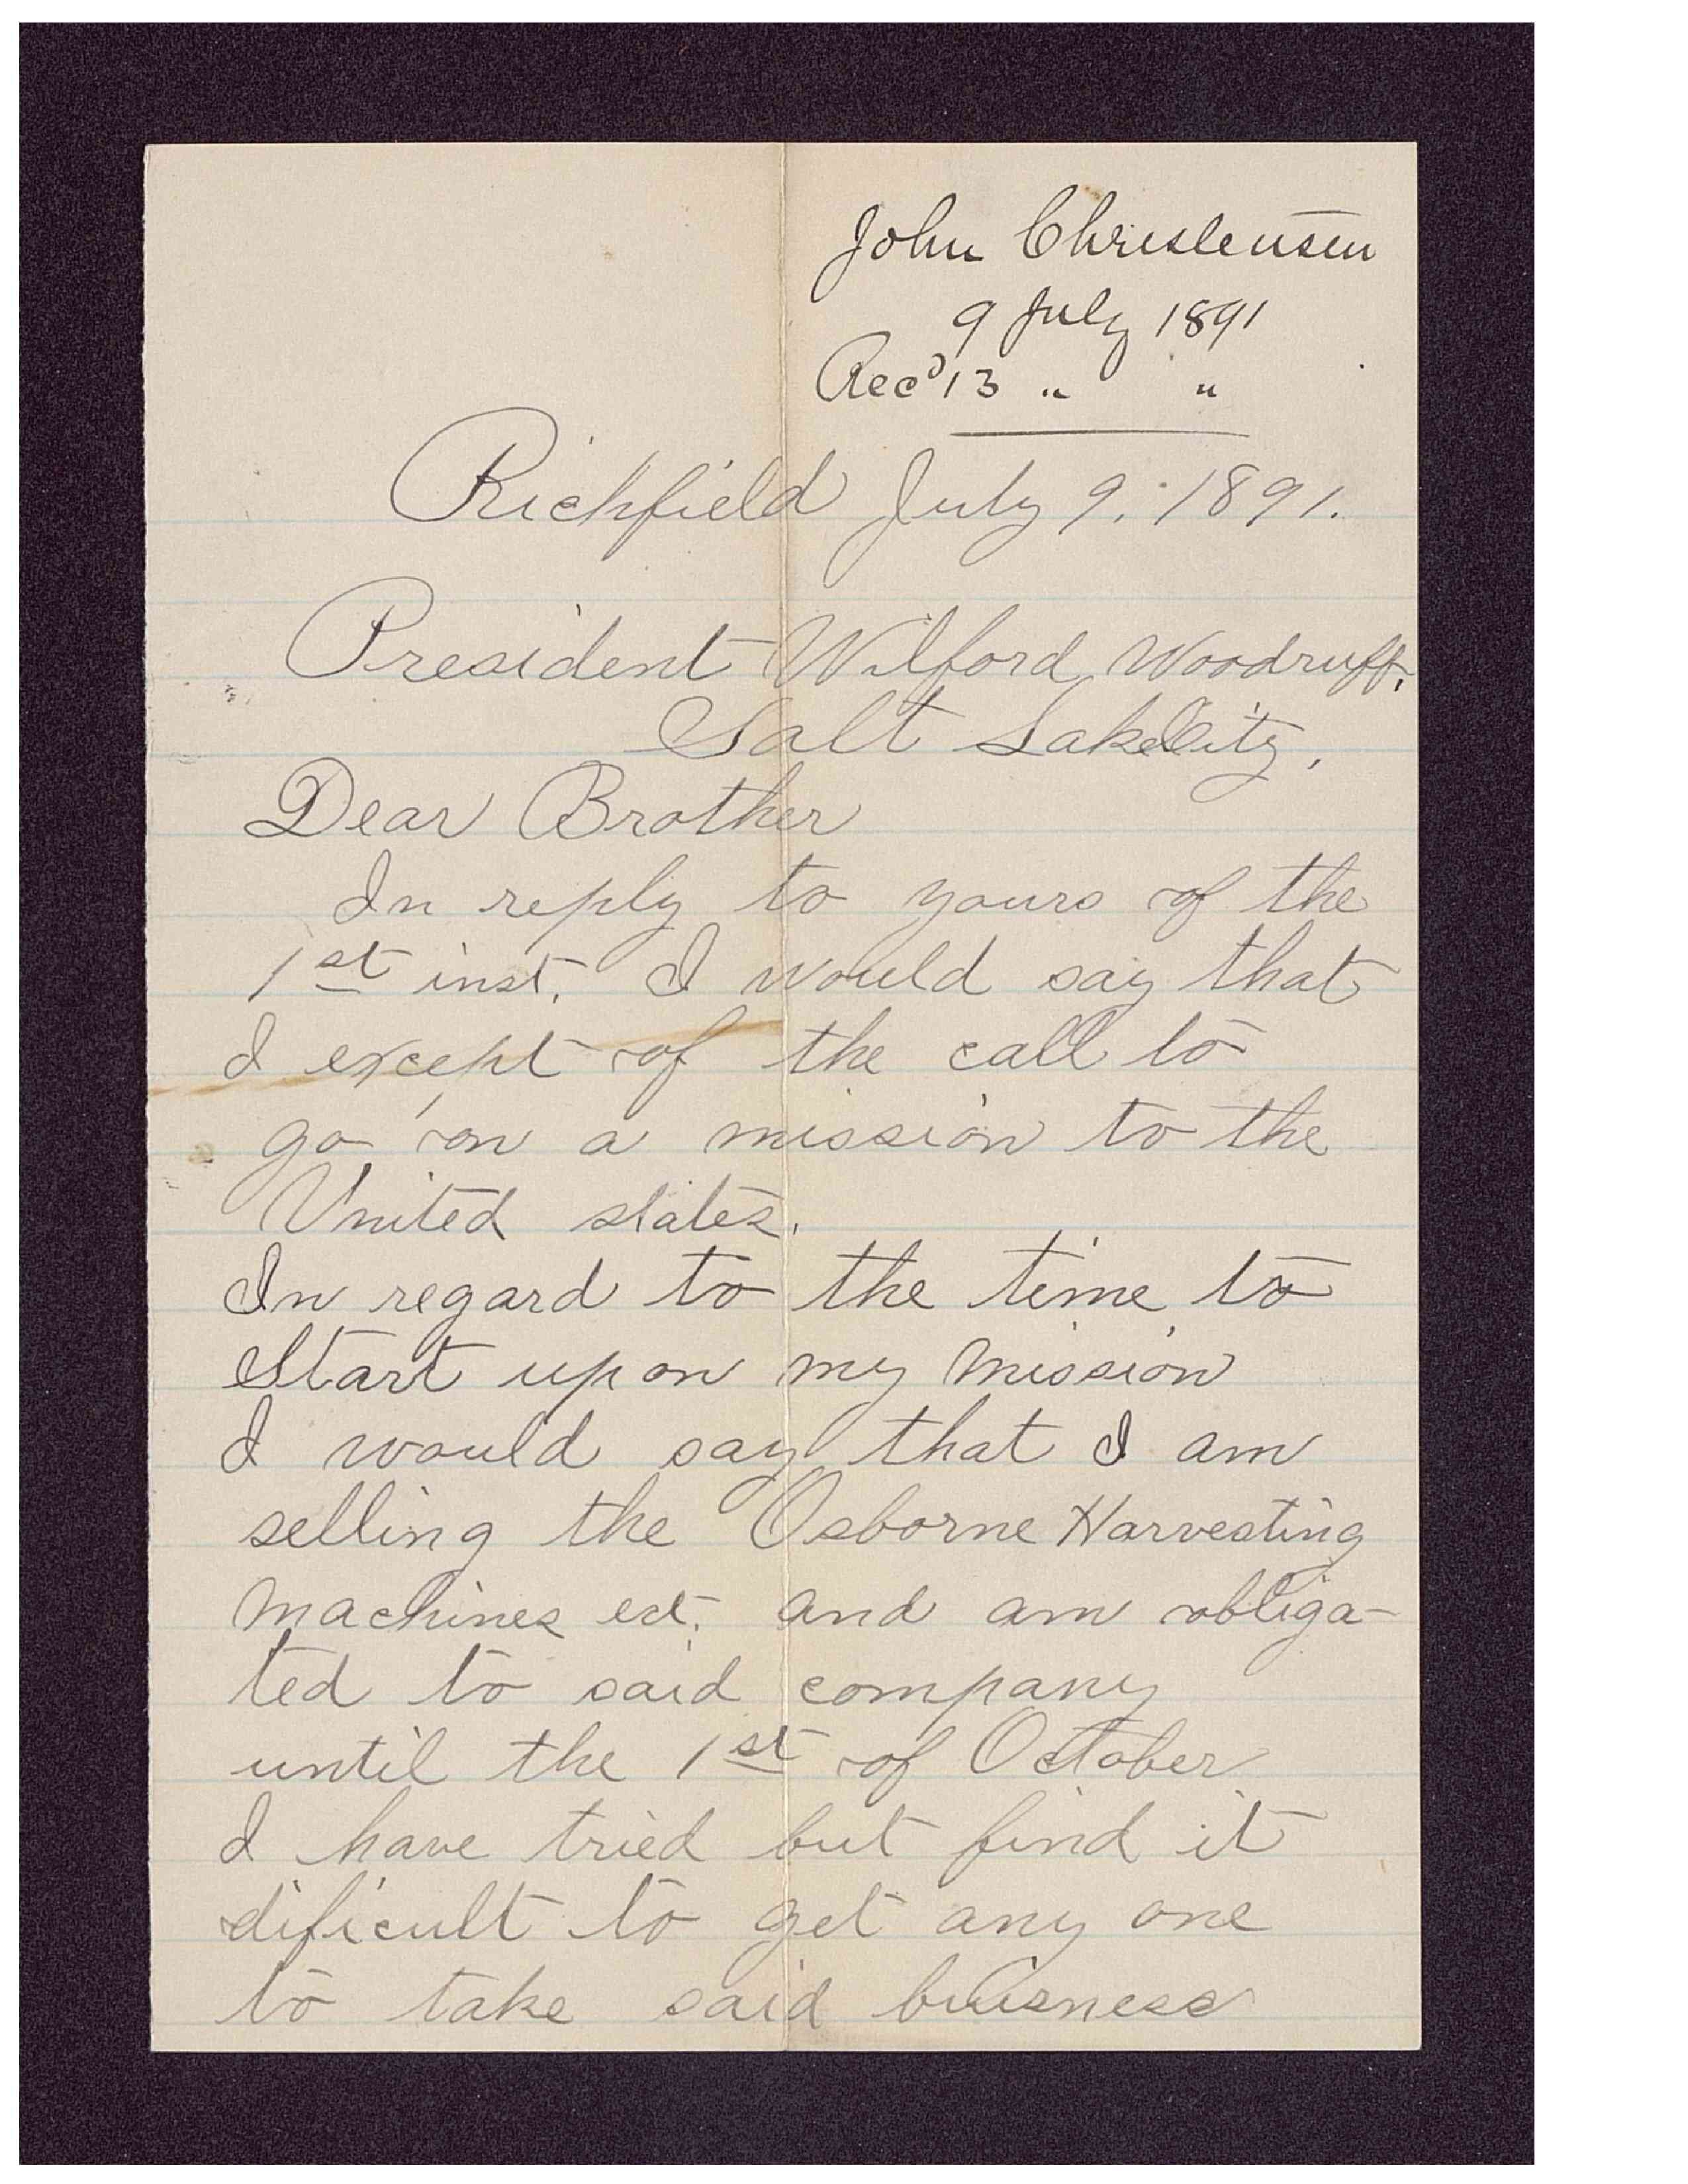 John Christensen
9 July 1891
Rec'd 13 " "
Richfield July 9. 1891.
President Wilford Woodruff.
Salt Lake City,
Dear Brother
In reply to yours of the
1st inst. I would say that
I except of the call to
go on a mission to the
United states.
In regard to the time to
Start upon my mission
I would say that I am
selling the Osborne Harvesting
Machines ect. and am obliga-
ted to said company
until the 1st of October
I have tried but find it
dificult to get any one
to take said buisness